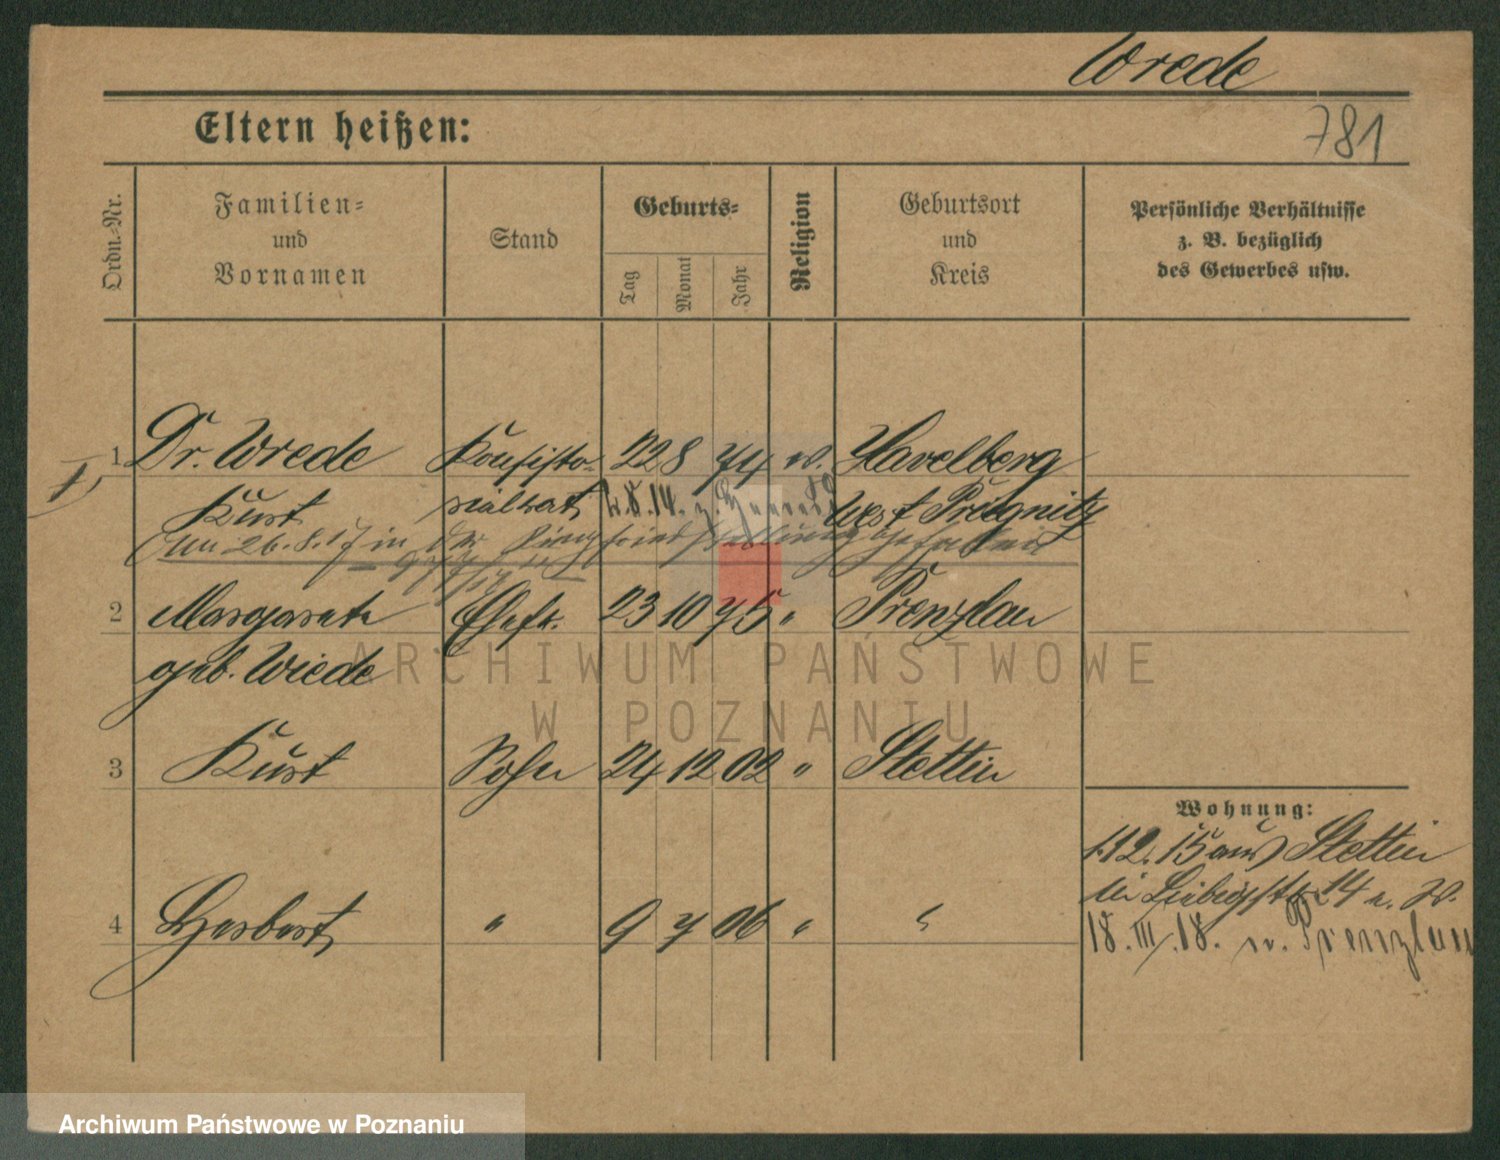 Wrede
781
Eltern heißen:
Ordn.-Nr.
Familien-
und
Vornamen
Stand
Geburts-
Tag
Monat
Jahr
Religion
Geburtsort
und
Kreis
Persönliche Verhältnisse
z. B. bezüglich
des Gewerbes usw.
1 Dr. Wrede Konsisto- 22 8 74 ev. Havelberg
Kurt rialrat 2.8.14. z. West Prignitz
Am 26.8.17 in der gefallen
2 Margarete Ehefr. 23 10 75 " Prenzlau
geb. Wiede
3 Kurt Sohn 24 12 02 " Stettin
4 Herbert " 9 7 06 " "
Wohnung:
1.12.15 aus Stettin
18.III.18. n. Prenzlau
ARCHIWUM PAŃSTWOWE
W POZNANIU
Archiwum Państwowe w Poznaniu